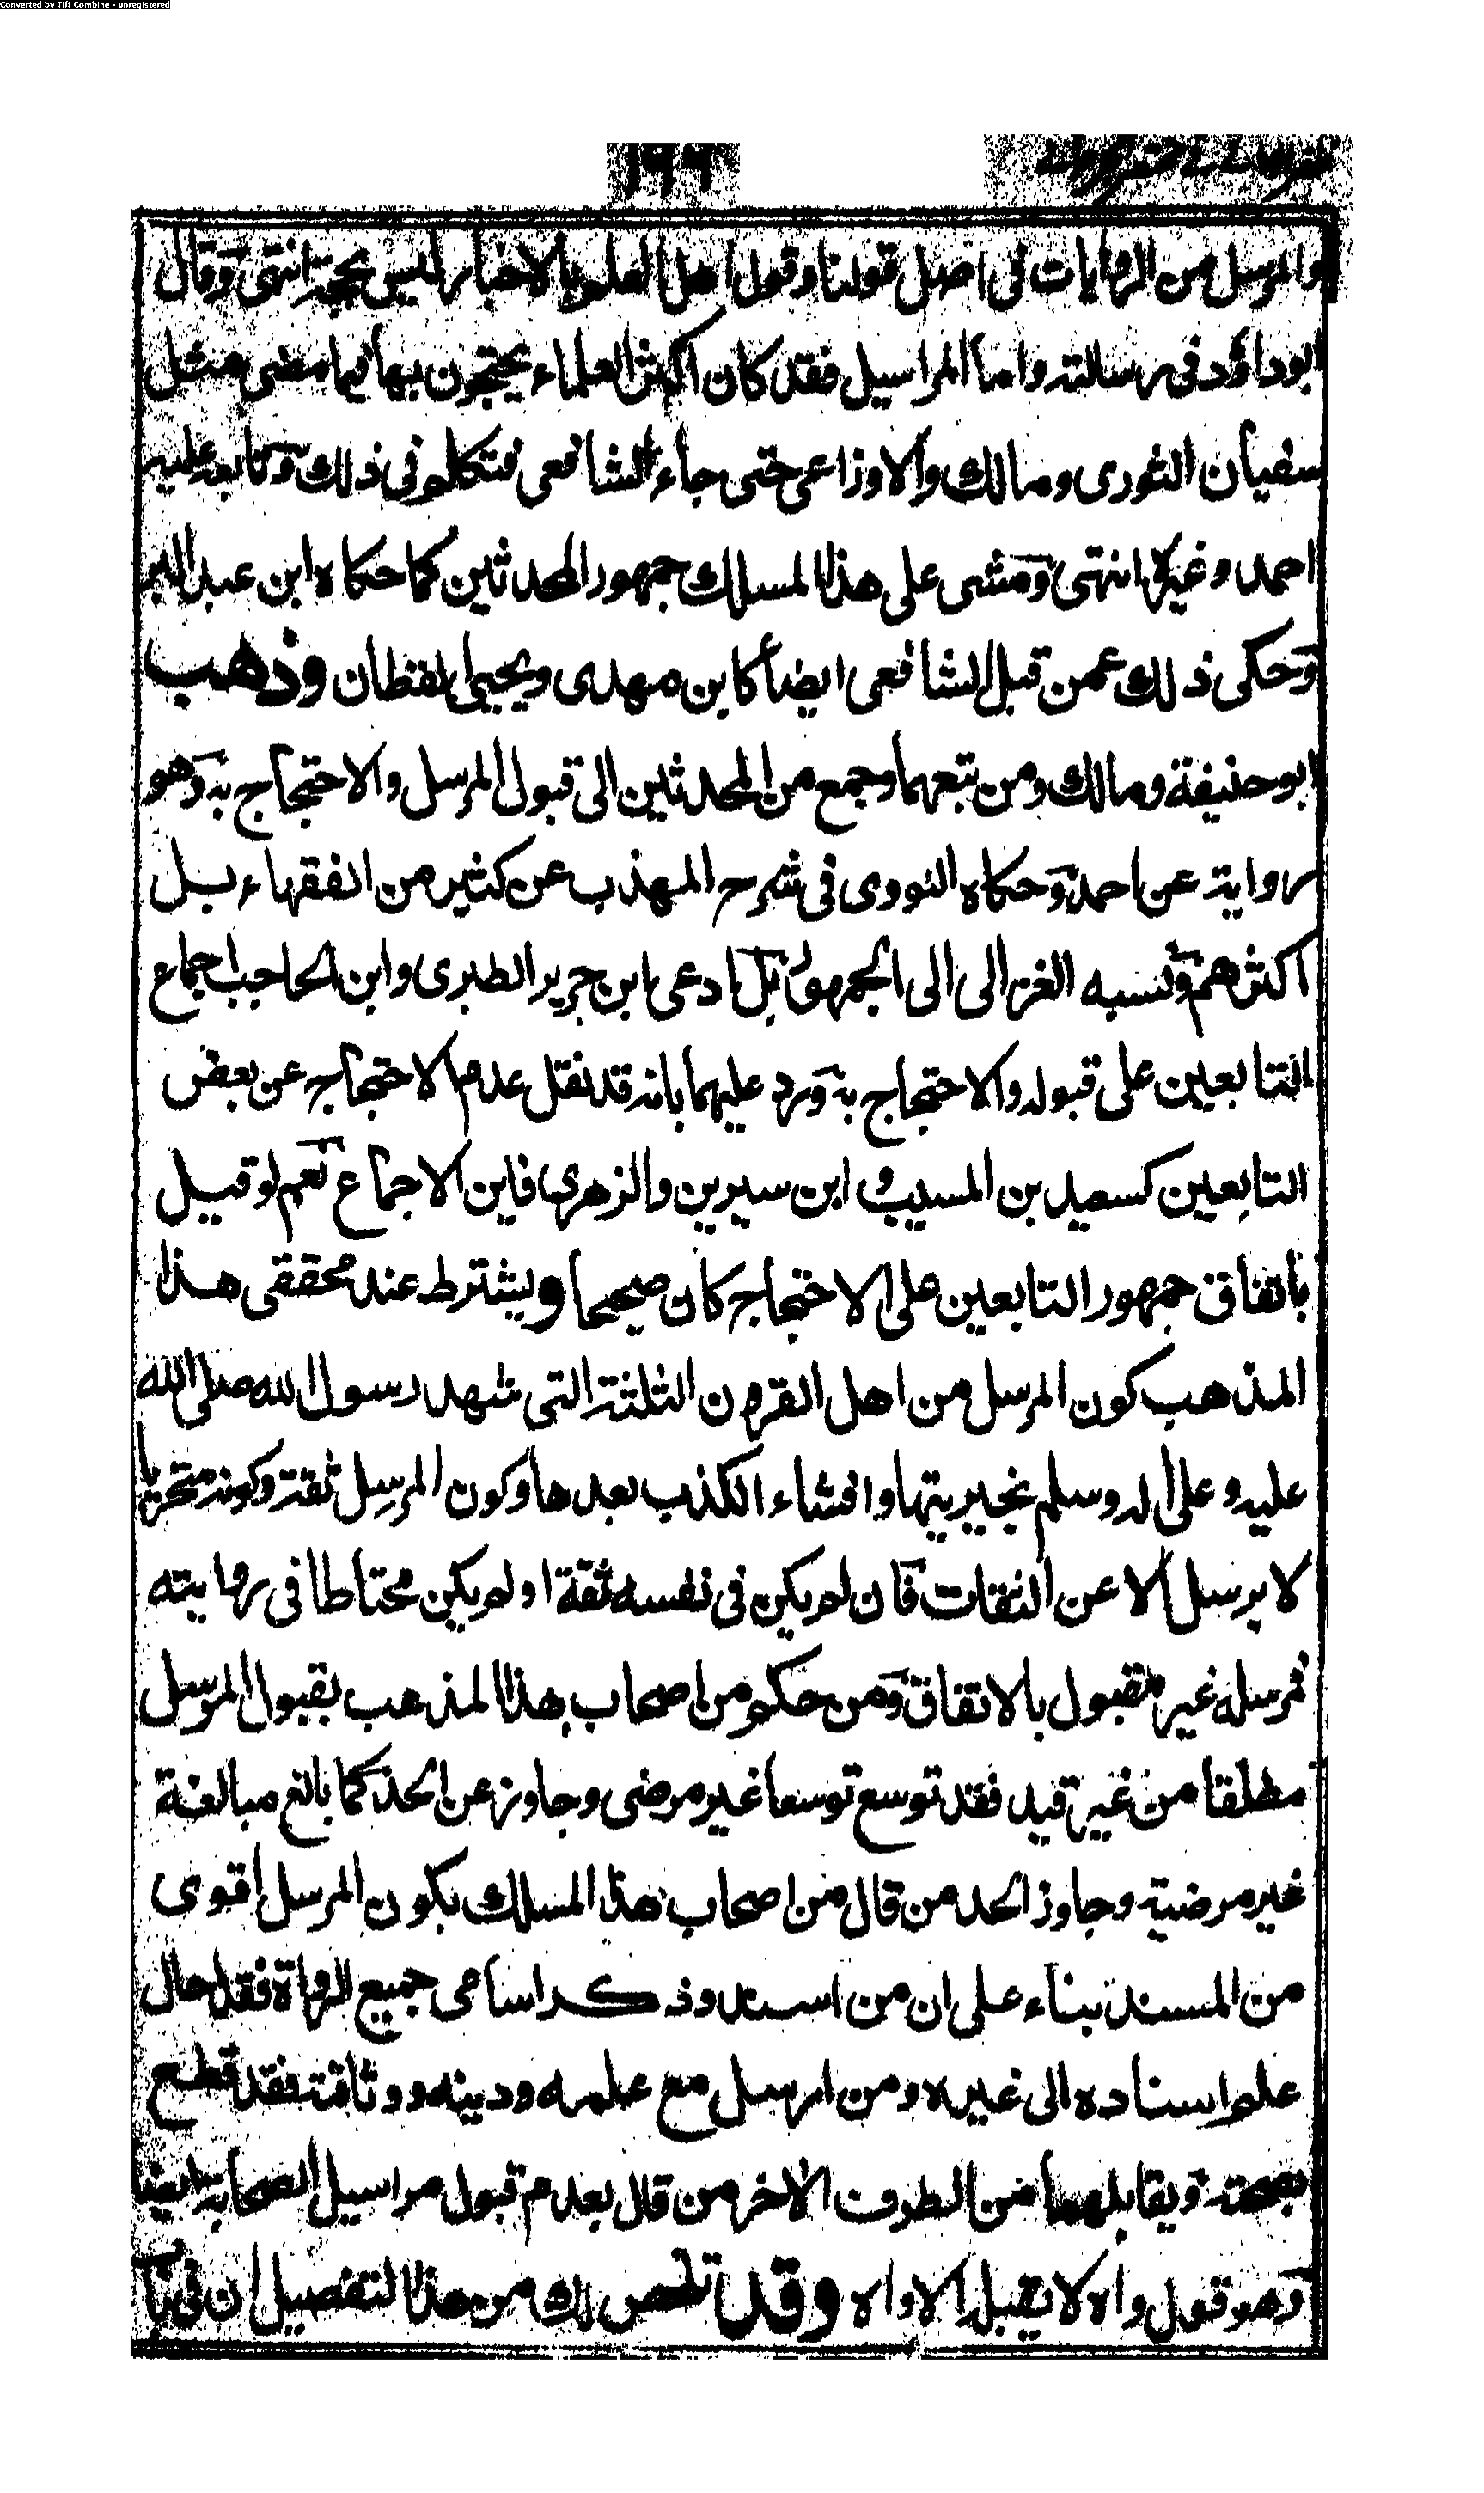 Converted by Tiff Combine - unregistered
والمرسل من الروايات فى اصل قولنا وقول اهل العلم بالاخبار ليس بحجة انتهى وقال
ابو داؤد فى رسالته واما المراسيل فقد كان اكثر العلماء يحتجون بها فيما مضى مثل
سفيان الثورى ومالك والاوزاعى حتى جاء الشافعى فتكلم فى ذلك وتابعه عليه
احمد وغيره انتهى ومشى على هذا المسلك جمهور المحدثين كما حكاه ابن عبد البر
وحكى ذلك عمن قبل الشافعى ايضا كابن مهدى ويحيى القطان وذهب
ابو حنيفة ومالك ومن تبعهما وجمع من المحدثين الى قبول المرسل والاحتجاج به وهو
رواية عن احمد وحكاه النووى فى شرح المهذب عن كثير من الفقهاء بل
اكثرهم ونسبه الغزالى الى الجمهور بل ادعى ابن جرير الطبرى وابن الحاجب اجماع
التابعين على قبوله والاحتجاج به ورد عليهما بانه قد نقل عدم الاحتجاج عن بعض
التابعين كسعيد بن المسيب و ابن سيرين والزهرى فاين الاجماع نعم لو قيل
باتفاق جمهور التابعين على الاحتجاج كان صحيحا ويشترط عند محققى هذا
المذهب كون المرسل من اهل القرون الثلثة التى شهد رسول الله صلى الله
عليه وعلى اله وسلم بخيريتها وافشاء الكذب بعدها وكون المرسِل ثقة وكونه متحريا
لا يرسل الا عن الثقات فان لم يكن فى نفسه ثقة او لم يكن محتاطا فى روايته
فمرسله غير مقبول بالاتفاق ومن حكم من اصحاب هذا المذهب بقبول المرسل
مطلقا من غير قيد فقد توسع توسعا غير مرضى وجاوز عن الحد كما بالغ مبالغة
غير مرضية وجاوز الحد من قال من اصحاب هذا المسلك بكون المرسل اقوى
من المسند بناء على ان من اسند وذكر اسامى جميع الرواة فقد احال
علم اسناده الى غيره ومن ارسل مع علمه ودينه ووثاقته فقد قطع
بصحته ويقابلهما من الطرف الاخر من قال بعدم قبول مراسيل الصحابة ايضا
وهو قول واه لا يقبل الا واه وقد تلخص لك من هذا التفصيل ان فى